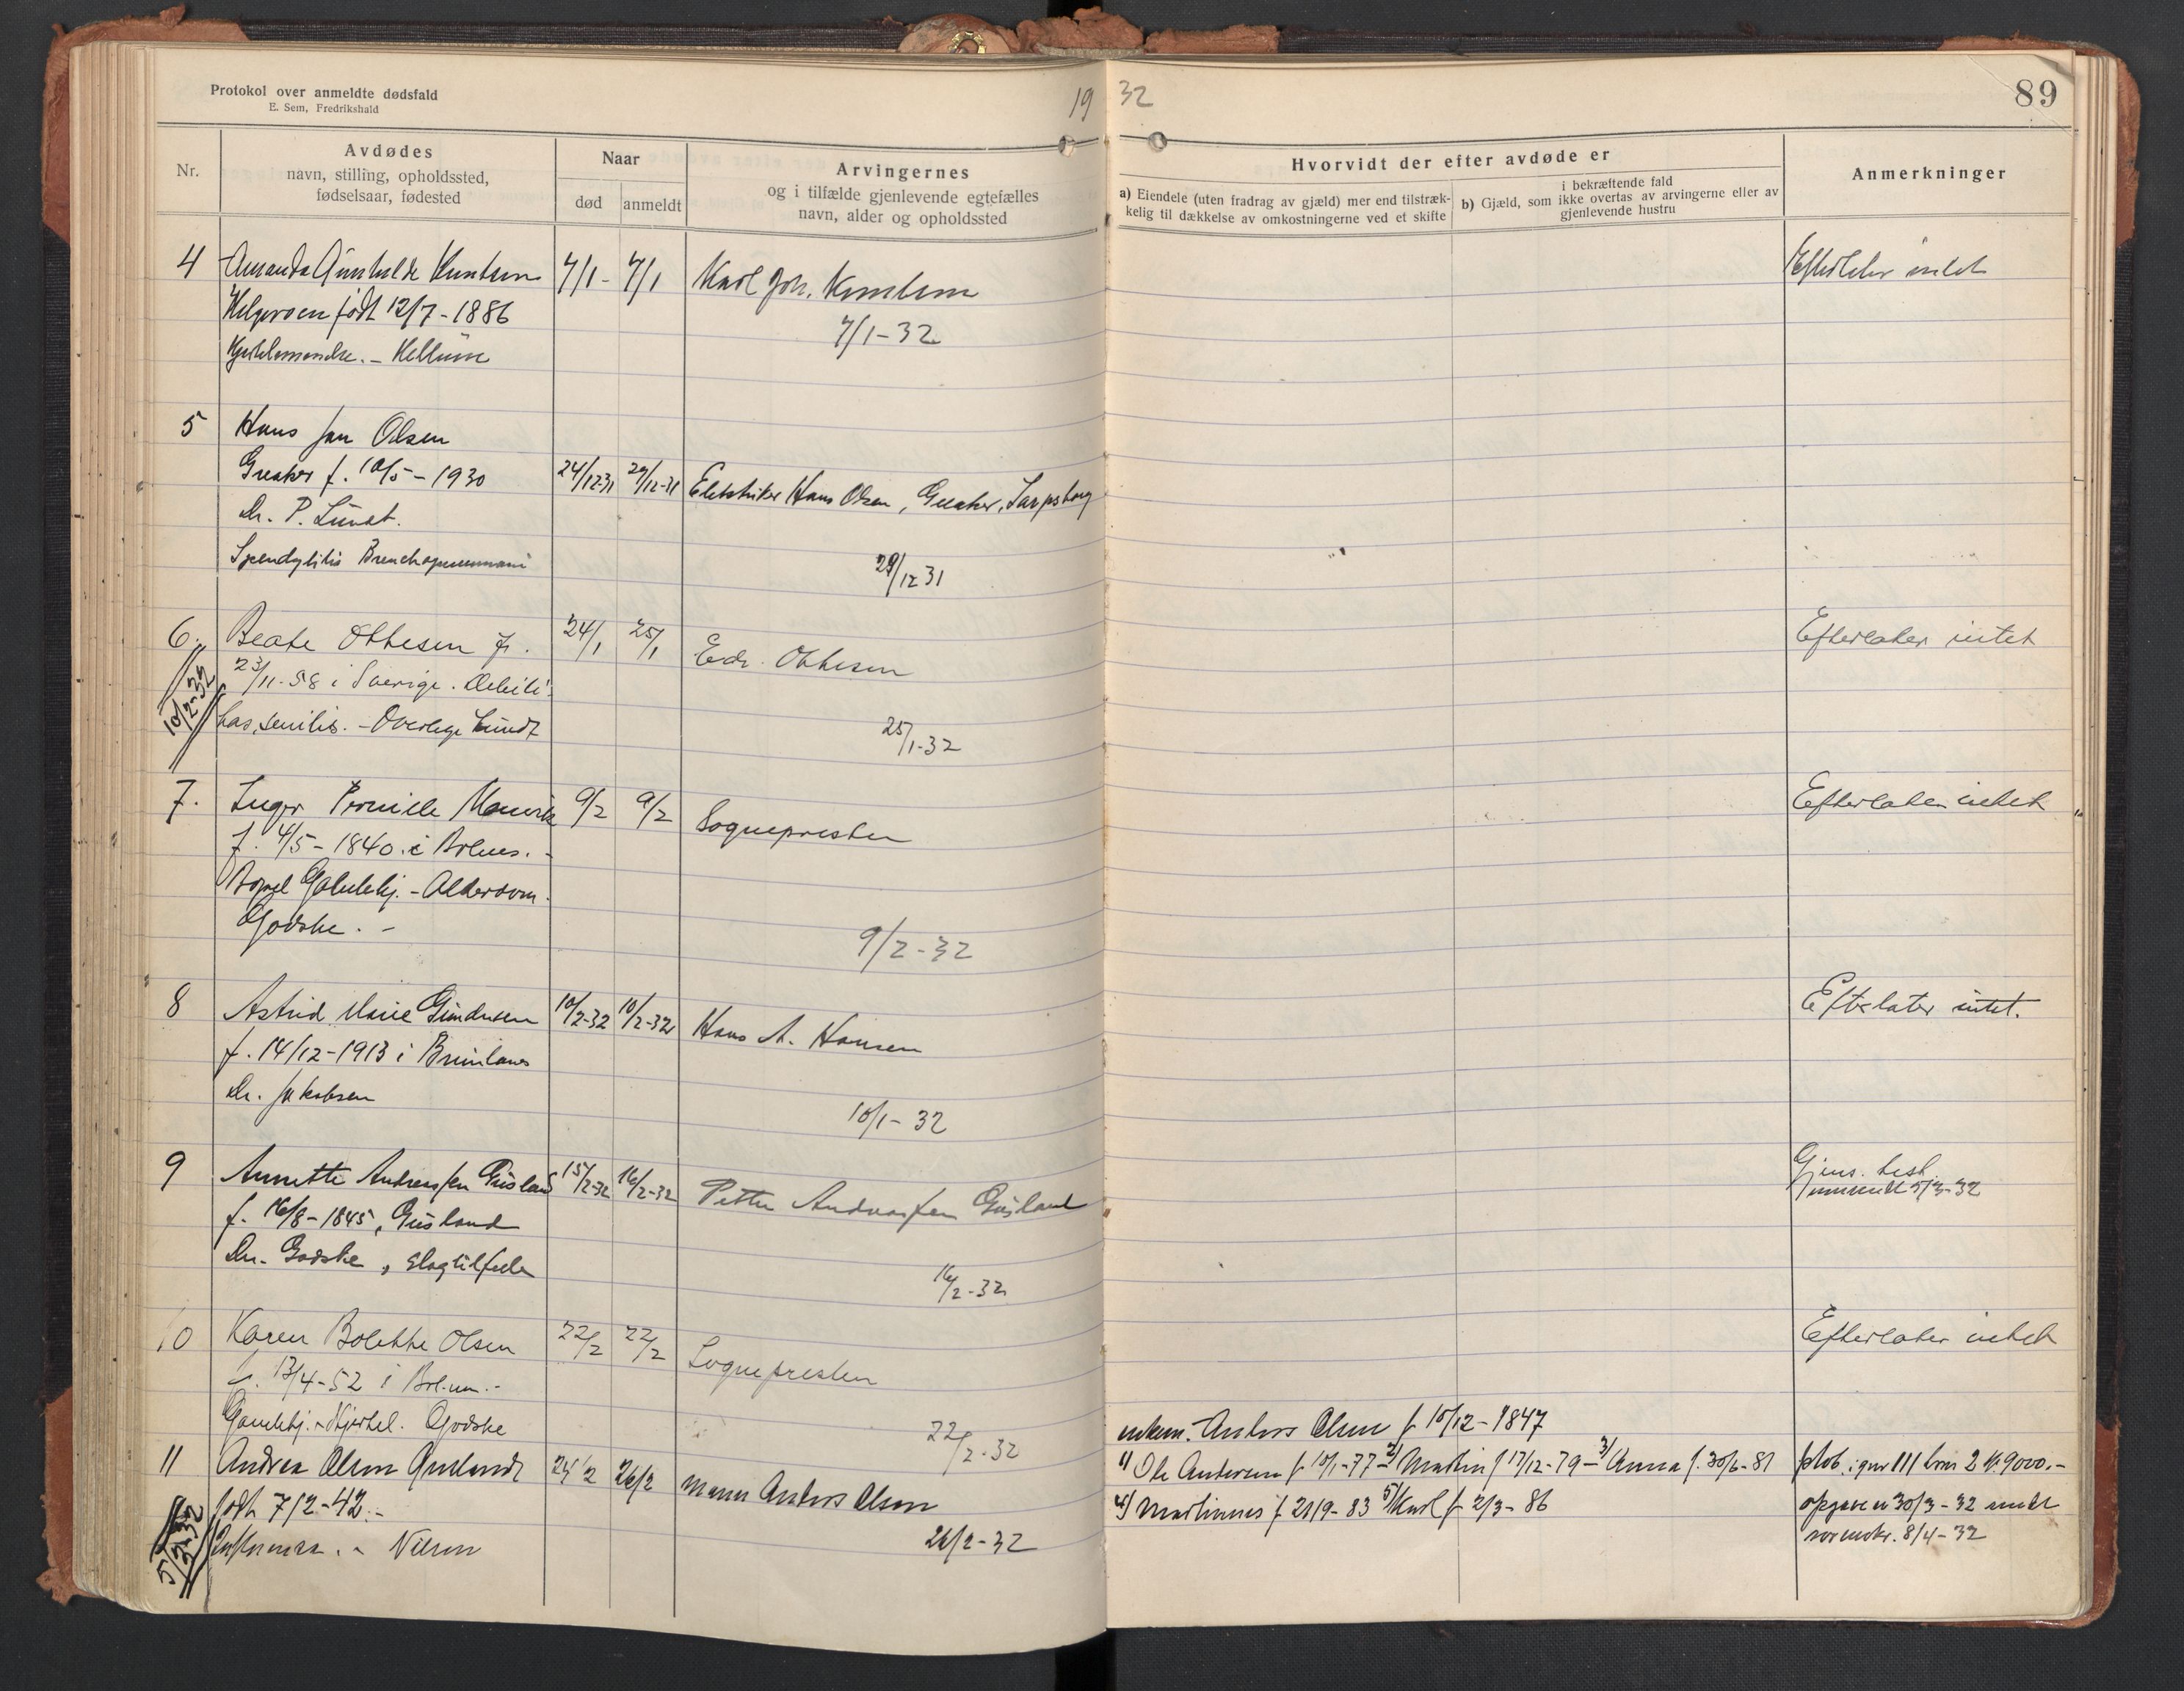 Protokol over anmeldte dødsfald
E. Sem, Fredrikshald
19 32
89
Nr.
Avdødes
navn, stilling, opholdssted,
fødselsaar, fødested
Naar
død
anmeldt
Arvingernes
og i tilfælde gjenlevende egtefælles
navn, alder og opholdssted
Hvorvidt der efter avdøde er
a) Eiendele (uten fradrag av gjæld) mer end tilstræk-
kelig til dækkelse av omkostningerne ved et skifte
i bekræftende fald
b) Gjæld, som ikke overtas av arvingerne eller av
gjenlevende hustru
Anmerkninger
4 Amanda Gunhilde Knutsen 7/1 - 7/1 Karl Joh. Knutsen Efterlater intet
Helgeroen født 12/7 - 1886
7/1 - 32
5 Hans Jan Olsen
Greaker f. 10/5 - 1930 24/12-31 29/12-31 Elektriker Hans Olsen, Greaker, Sarpsborg
Dr. P. Lundt.
Spondylitis Bronchopneumoni
29/12 31
6. Beate Ottesen f. 24/1 25/1 Edv. Ottesen Efterlater intet
23/11-58 i Sverige. Debili-
tas senilis. - Overlege Lundt
10/2-32
25/1-32
7. Inger Pernille 9/2 9/2 Sognepresten Efterlater intet
f. 4/5 - 1840 i Brlnes. -
Gamlehj. - Alderdom.
Godske. -
9/2 - 32
8 Astrid Marie Gundersen 10/2-32 10/2-32 Hans A. Hansen Efterlater intet.
f. 14/12 - 1913 i Brunlanes
Dr. Jakobsen
10/1 - 32
9 Annette Andreassen Gusland 15/2-32 16/2-32 Petter Andreassen Gusland Gjens. test.
f. 16/8 - 1845, Gusland 5/3-32
Dr. Godske, slagtilfelde
16/2-32
10 Karen Bolette Olsen 22/2 22/2 Sognepresten Efterlater intet
f. 13/4-52 i Brl.nes. -
Gamlehj. - Hjertel. Godske
22/2-32
enkem. Anders Olsen f. 10/12 - 1847
11 Andrea Olsen Guslandt 24/2 26/2 Mann Anders Olsen
1) Ole Andersen f. 10/1-77 - 2) Martin f. 17/12-79 - 3) Anna f. 30/6-81
4) Martinius f. 21/9-83 5) Karl f. 2/3-86
født 7/2-42. -
Influensa. - Nilsen
5/3-32
26/2-32
9000.-
opgave 30/3 - 32 sendt
sorenskr. 8/4 - 32